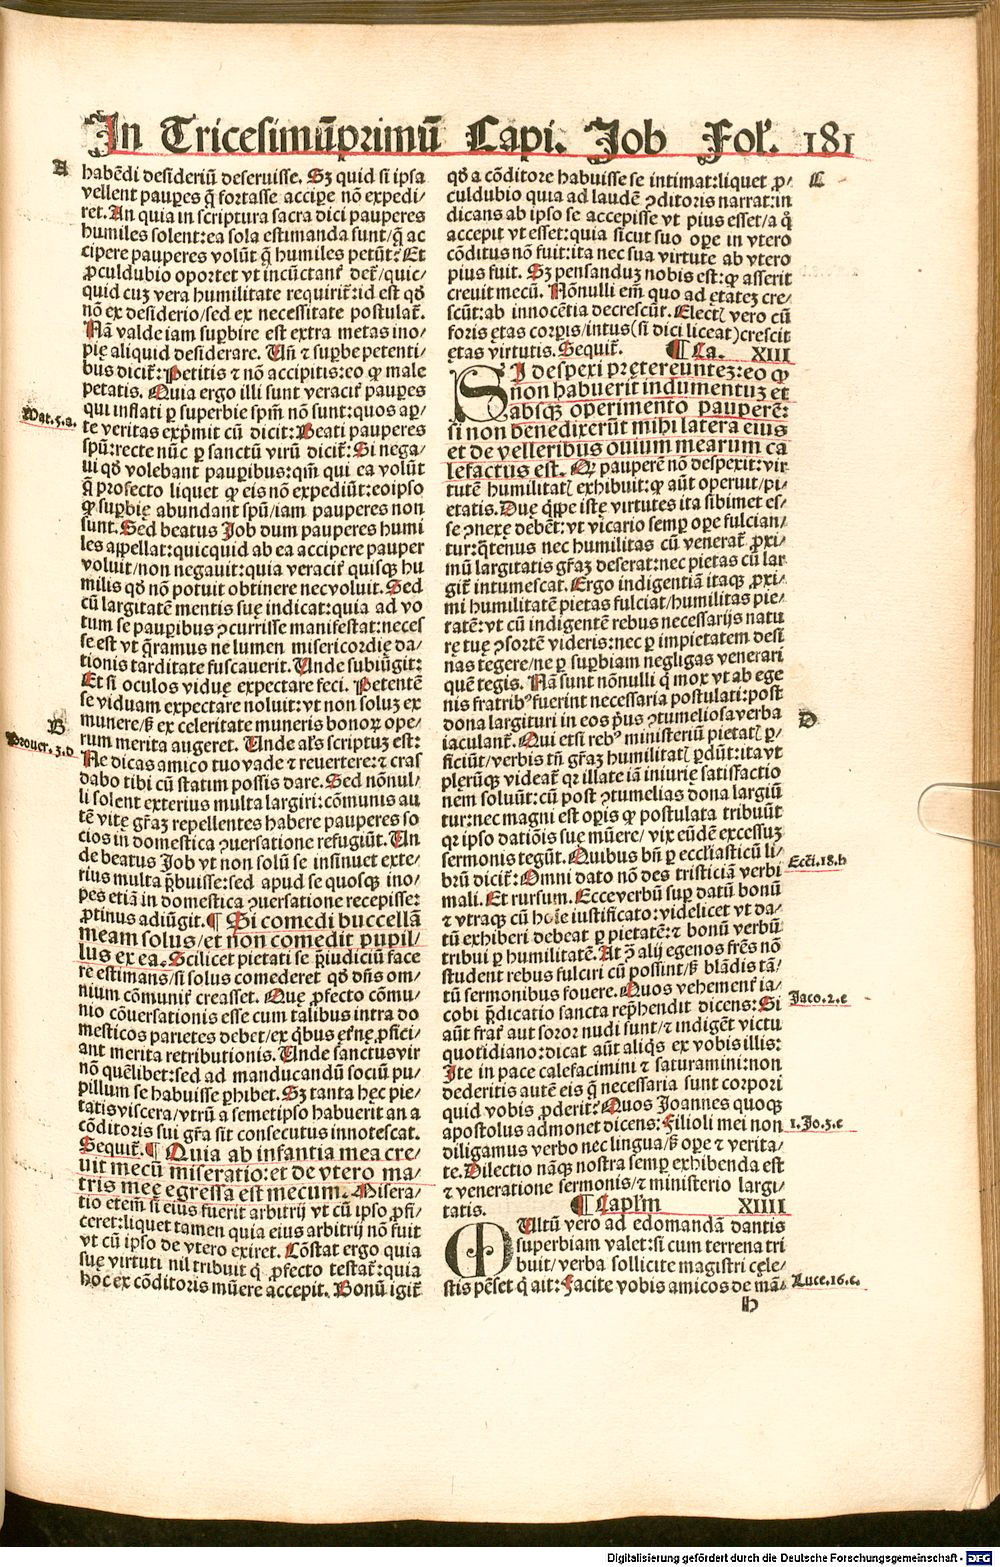 In Tricesimūprimū Capi. Job Fol'. 181
A
habēdi desideriū deseruisse. Sꝫ quid si ipsa
vellent pauꝑes q̄ fortasse accipe nō expedi/
ret. An quia in scriptura sacra dici pauperes
humiles solent: ea sola estimanda sunt/q̄ ac
cipere pauperes volūt q̄ humiles petūt? Et
ꝓculdubio oportet vt incūctant᷑ det᷑/quic/
quid cuꝫ vera humilitate requirit᷑: id est qd̛
nō ex desiderio/sed ex necessitate postulat᷑.
Nā valde iam suꝑbire est extra metas ino/
pię aliquid desiderare. Vñ ⁊ suꝑbe petenti/
bus dicit᷑: Petitis ⁊ nō accipitis: eo ꝙ male
petatis. Quia ergo illi sunt veracit᷑ pauꝑes
qui inflati ꝑ superbie spm̄ nō sunt: quos aꝑ/
Mat.5.a.
te veritas exp̄mit cū dicit: Beati pauperes
spū: recte nūc ꝑ sanctū virū dicit᷑: Si nega/
ui qd̛ volebant pauꝑibus: qm̄ qui ea volūt
q̄ profecto liquet ꝙ eis nō expediūt: eoipso
ꝙ suꝑbię abundant spū/iam pauperes non
sunt. Sed beatus Job dum pauperes humi
les appellat: quicquid ab ea accipere pauper
voluit/non negauit: quia veracit᷑ quisqꝫ hu
milis qd̛ nō potuit obtinere nec voluit. Sed
cū largitatē mentis suę indicat: quia ad vo
tum se pauꝑibus ꝯcurrisse manifestat: neces
se est vt q̄ramus ne lumen misericordię da/
tionis tarditate fuscauerit. Vnde subiūgit:
Et si oculos viduę expectare feci. Petentē
se viduam expectare noluit: vt non soluꝫ ex
B
munere/ß ex celeritate muneris bonoꝝ ope/
Prouer.3.d
rum merita augeret. Vnde al's scriptuꝫ est:
Ne dicas amico tuo vade ⁊ reuertere: ⁊ cras
dabo tibi cū statim possis dare. Sed nōnul/
li solent exterius multa largiri: cōmunis au
tē vitę gr̄aꝫ repellentes habere pauperes so
cios in domestica ꝯuersatione refugiūt. Un
de beatus Job vt non solū se insinuet exte/
rius multa p̄buisse: sed apud se quosqꝫ ino/
pes etiā in domestica ꝯuersatione recepisse:
ꝓtinus adiūgit. ¶ Si comedi buccellā
meam solus/et non comedit pupil/
lus ex ea. Scilicet pietati se p̄iudiciū face
re estimans/si solus comederet qd̛ dn̄s om/
nium cōmunit᷑ creasset. Que ꝓfecto cōmu/
nio cōuersationis esse cum talibus intra do
mesticos parietes debet/ex qͥbus et᷑nę ꝓfici/
ant merita retributionis. Vnde sanctus vir
nō quēlibet: sed ad manducandū sociū pu/
pillum se habuisse ꝑhibet. Sꝫ tanta hęc pie/
tatis viscera/vtrū a semetipso habuerit an a
cōditoris sui gr̄a sit consecutus innotescat.
Sequit᷑. ¶ Quia ab infantia mea cre/
uit mecū miseratio: et de vtero ma/
tris meę egressa est mecum. Misera/
tio etem̄ si eius fuerit arbitrij vt cū ipso ꝓfi/
ceret: liquet tamen quia eius arbitrij nō fuit
vt cū ipso de vtero exiret. Cōstat ergo quia
suę virtuti nil tribuit q̇ ꝓfecto testat᷑: quia
hoc ex cōditoris mūere accepit. Bonū igit᷑
qd̛ a cōditore habuisse se intimat: liquet ꝓ/
C
culdubio quia ad laudē ꝯditoris narrat: in
dicans ab ipso se accepisse vt pius esset/a q̊
accepit vt esset: quia sicut suo oꝑe in vtero
cōditus nō fuit: ita nec sua virtute ab vtero
pius fuit. Sꝫ pensanduꝫ nobis est: ꝙ asserit
creuit mecū. Nōnulli em̄ quo ad ętateꝫ cre/
scūt: ab innocētia decrescūt. Electꝭ vero cū
foris ętas corꝑis/intus (si dici liceat) crescit
ętas virtutis. Sequit᷑. ¶ Ca. XIII
SI despexi prętereunteꝫ: eo ꝙ
non habuerit indumentuꝫ et
absqꝫ operimento pauperē:
si non benedixerūt mihi latera eius
et de velleribus ouium mearum ca
lefactus est. Qꝛ pauperē nō despexit: vir
tutē humilitatꝭ exhibuit: ꝙ aūt operuit/pi/
etatis. Duę qͥppe istę virtutes ita sibimet es/
se ꝯnexę debēt: vt vicario semꝑ oꝑe fulcian/
tur: q̄tenus nec humilitas cū venerat᷑ ꝓxi/
mū largitatis gr̄aꝫ deserat: nec pietas cū lar
git᷑ intumescat. Ergo indigentiā itaqꝫ ꝓxi/
mi humilitatē pietas fulciat/humilitas pie/
ratē: vt cū indigentē rebus necessarijs natu
rę tuę ꝯsortē videris: nec ꝑ impietatem desi
nas tegere/ne ꝑ suꝑbiam negligas venerari
quē tegis. Nā sunt nōnulli q̇ mox vt ab ege
nis fratribꝰ fuerint necessaria postulati: post
D
dona largituri in eos pͥus ꝯtumeliosa verba
iaculant᷑. Qui etsi rebꝰ ministeriū pietatꝭ ꝑ/
ficiūt/verbis tn̄ gr̄aꝫ humilitatꝭ ꝑdūt: ita vt
plerūqꝫ videat᷑ qꝛ illate iā iniurię satisfactio
nem soluūt: cū post ꝯtumelias dona largiū
tur: nec magni est oꝑis ꝙ postulata tribuūt
qꝛ ipso datiōis suę mūere/ vix eūdē excessuꝫ
sermonis tegūt. Quibus bn̄ ꝑ ecclīasticū li/
Eccī.18.b
brū dicit᷑: Omni dato nō des tristiciā verbi
mali. Et rursum. Ecce verbū suꝑ datū bonū
⁊ vtraqꝫ cū hoīe iustificato: videlicet vt da/
tū exhiberi debeat ꝑ pietatē: ⁊ bonū verbū
tribui ꝑ humilitatē. At ꝯ̄ alij egenos fr̄es nō
student rebus fulciri cū possint/ß blādis tā/
tū sermonibus fouere. Quos vehement᷑ ia/
Jaco.2.c
cobi p̄dicatio sancta rep̄hendit dicens: Si
aūt frat᷑ aut soror nudi sunt/⁊ indigēt victu
quotidiano: dicat aūt aliqͥs ex vobis illis:
Ite in pace calefacimini ⁊ saturamini: non
dederitis autē eis q̄ necessaria sunt corpori
quid vobis ꝓderit? Quos Joannes quoqꝫ
apostolus admonet dicens: Filioli mei non
1.Jo.3.c
diligamus verbo nec lingua/ß oꝑe ⁊ verita/
te. Dilectio nāqꝫ nostra semꝑ exhibenda est
⁊ veneratione sermonis/⁊ ministerio largi/
tatis. ¶ Caplm̄ XIIII
MUltū vero ad edomandā dantis
superbiam valet: si cum terrena tri
buit/verba sollicite magistri cęle/
stis pēset q̇ ait: Facite vobis amicos de mā/
Luce.16.c.
h
Digitalisierung gefördert durch die Deutsche Forschungsgemeinschaft - DFG